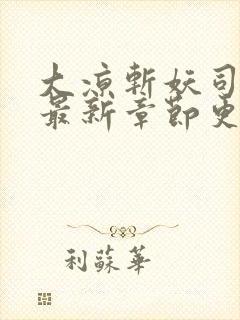 大涼斬妖司
最新章節更
利蘇華